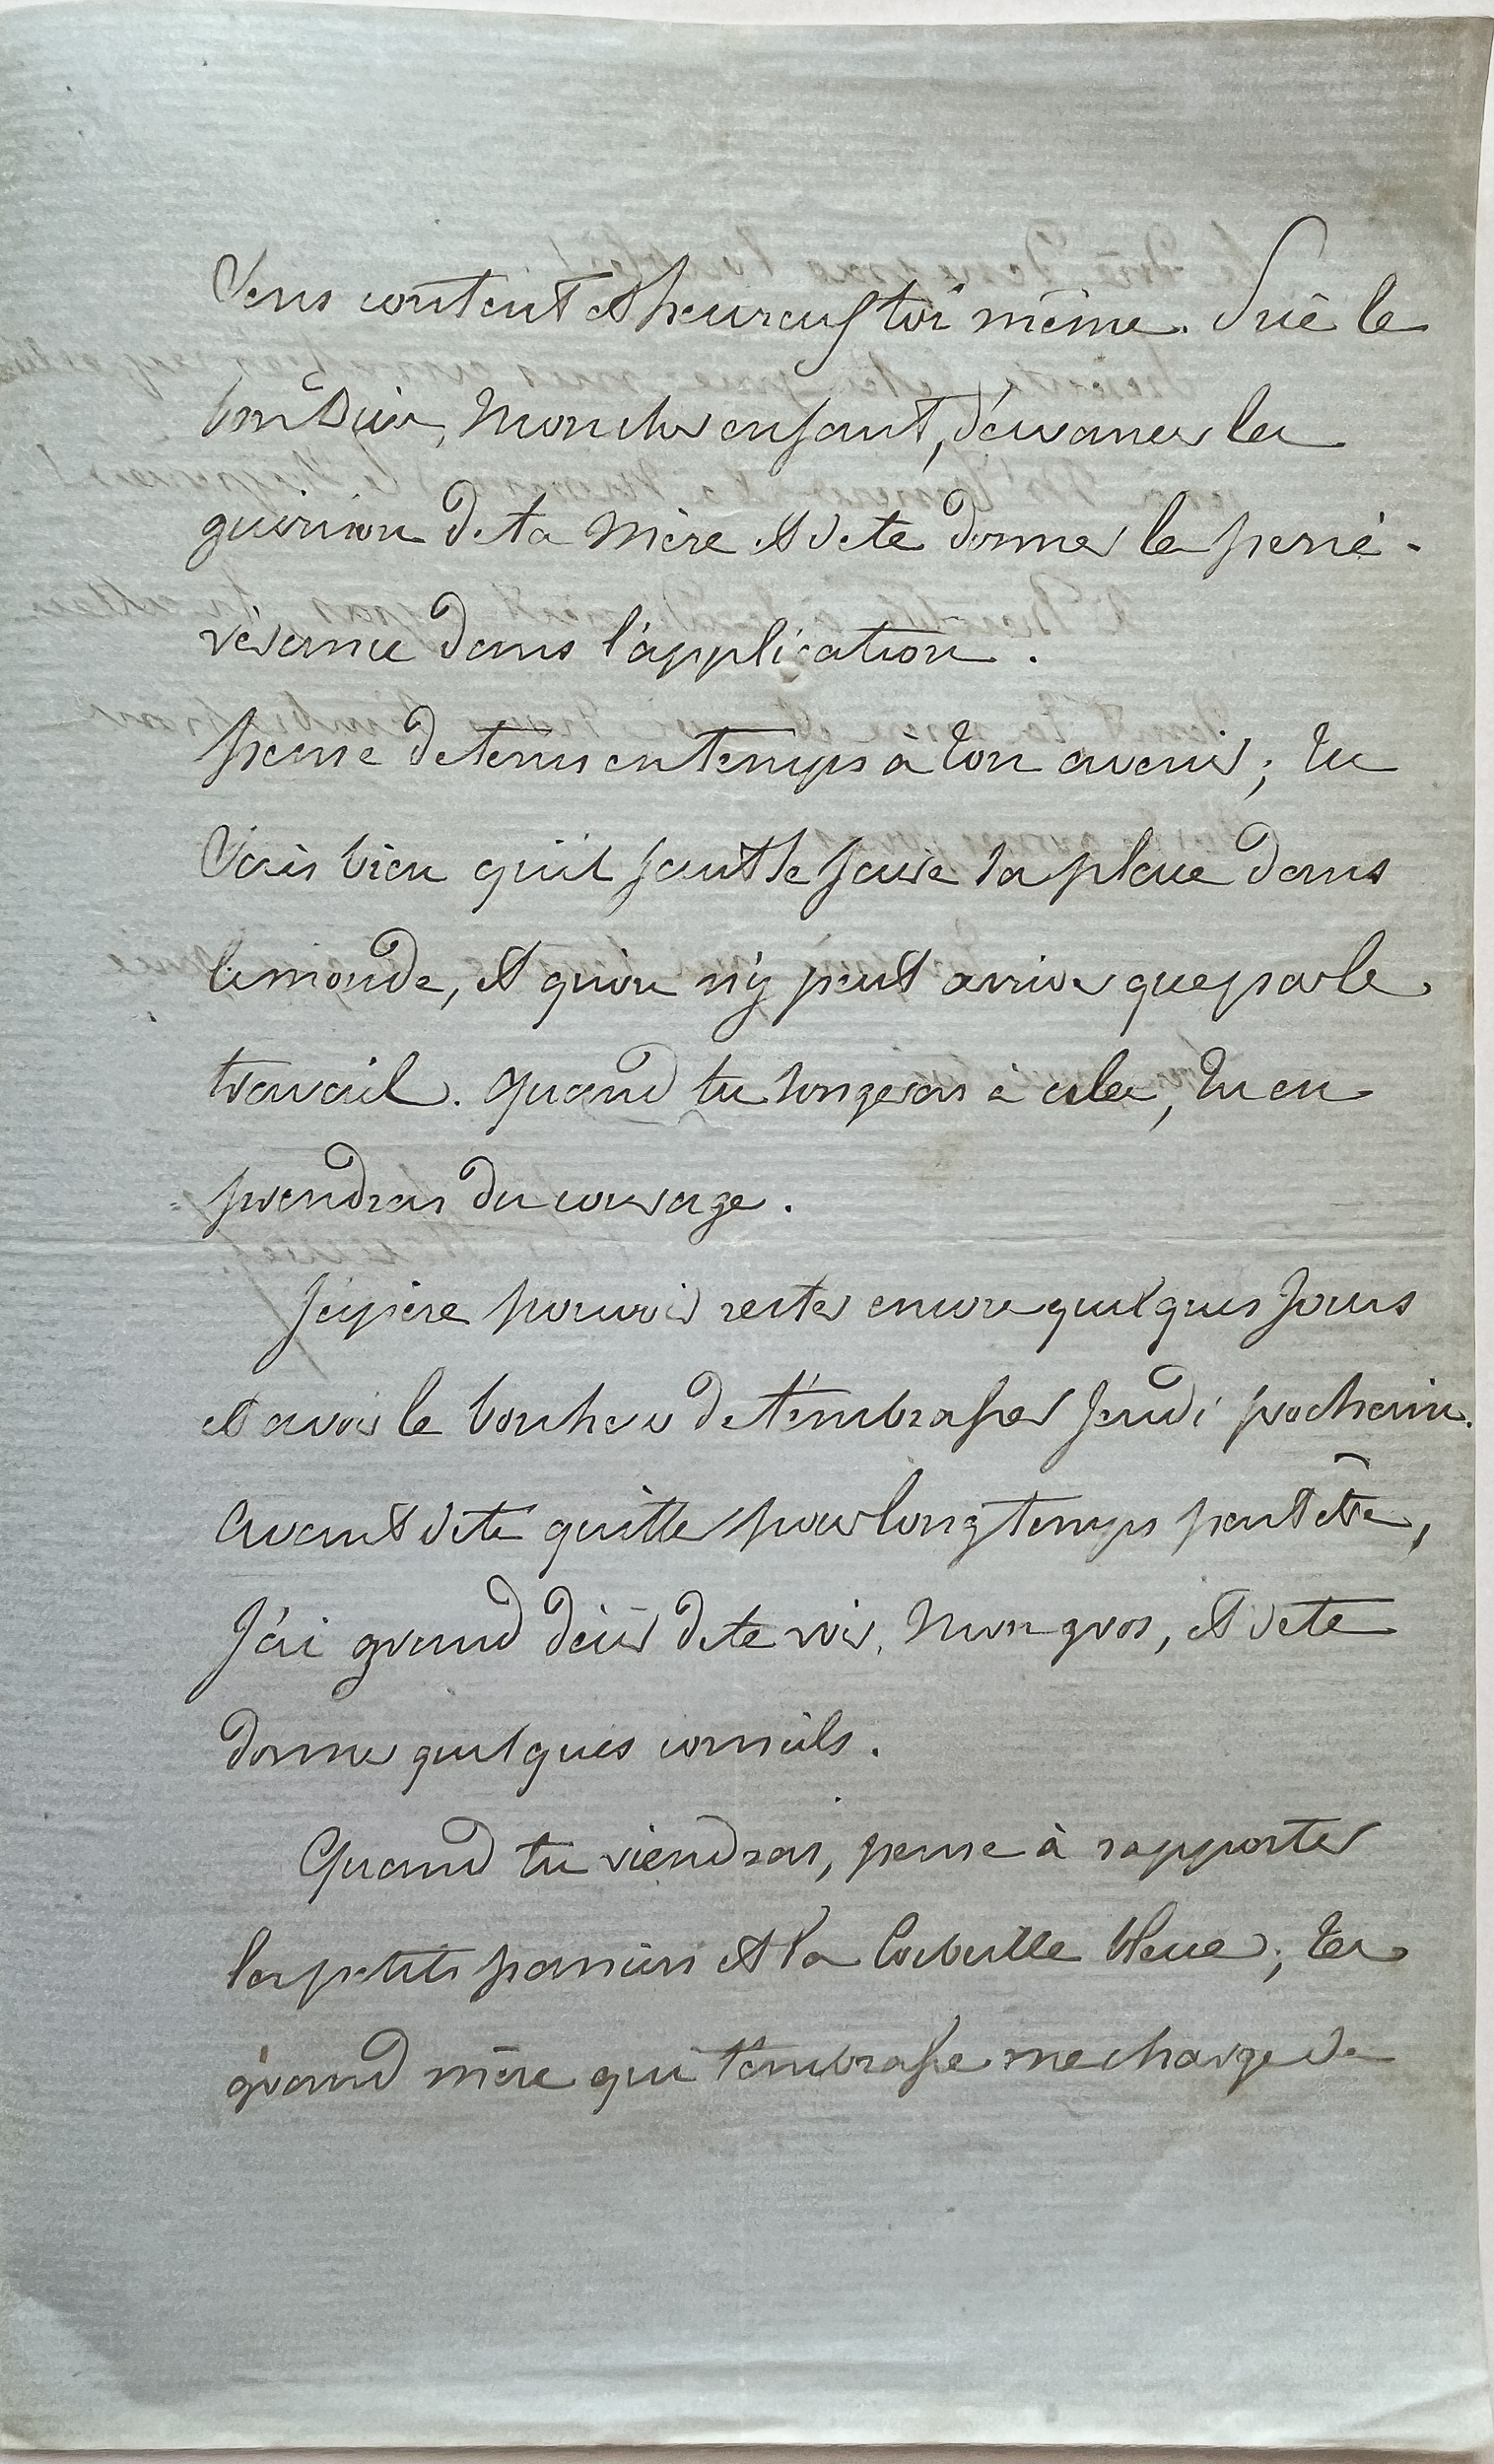 Sens content et heureux toi même. Prie le
bon Dieu, Mon cher enfant, d'avancer la
guérison de ta Mère et de te donner la persé-
vérance dans l'application.
pense de tems en temps à ton avenir; tu
Sais bien qu'il faut se faire sa place dans
le monde, et qu'on n'y peut arriver que par le
travail. Quand tu songeras à cela, tu en
prendras du courage.
J'espère pouvoir rester encore quelques Jours
et avoir le bonheur de t'embrasser Jeudi prochain.
Avant de te quitter pour longtemps peut être,
J'ai grand désir de te voir, Mon gros, et de te
donner quelques conseils.
Quand tu viendras, pense à rapporter
les petits paniers et la Corbeille bleue; ta
grand mère qui t'embrasse me charge de